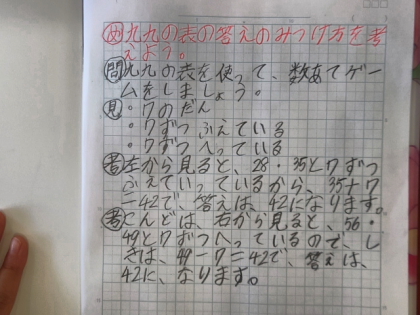 め 九九の表の答えのみつけ方を考
えよう。
問 九九の表を使って、数あてゲー
ムをしましょう。
見 ・7のだん
・7ずつふえている
・7ずつへっている
考 左から見ると、28・35と7ずつ
ふえていっているから、35+7
=42で、答えは、42になります。
考 こんどは、右から見ると、56・
49と7ずつへっているので、し
きは、49-7=42で、答えは、
42に、なります。